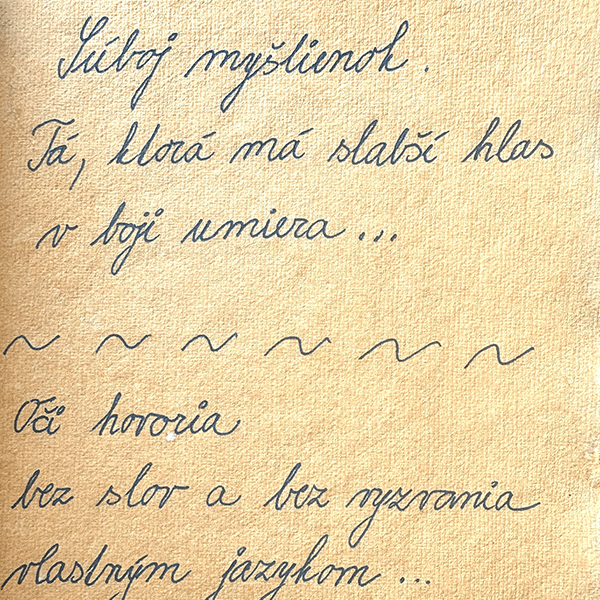 Súboj myšlienok.
Tá, ktorá má slabší hlas
v boji umiera...
~ ~ ~ ~ ~ ~
Oči hovoria
bez slov a bez vyzvania
vlastným jazykom...